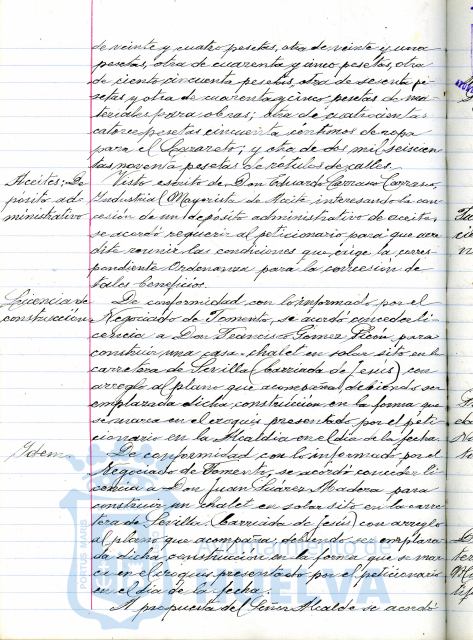 de veinte y cuatro pesetas, otra de veinte y una
pesetas, otra de cuarenta y cinco pesetas, otra
de ciento cincuenta pesetas, otra de sesenta pe-
setas y otra de cuarenta y cinco pesetas de ma-
teriales para obras; otra de cuatrocientas
catorce pesetas cincuenta céntimos de ropa
para el Lazareto; y otra de dos mil seiscien-
tas noventa pesetas de rótulos de calles.
Aceites; De-
posito ad-
ministrativo
Visto escrito de Don Eduardo Carrasco Carrasco,
Industrial Mayorista de Aceite interesando la con-
cesión de un depósito administrativo de aceites,
se acordó requerir al peticionario para que acre-
dite reunir las condiciones que exige la corres-
pondiente Ordenanza para la concesión de
tales beneficios.
Licencia de
construcción
De conformidad con lo informado por el
Negociado de Fomento, se acordó conceder li-
cencia a Don Francisco Gómez Picón, para
construir una casa-chalet en solar sito en la
carretera de Sevilla (barriada de Jesús) con
arreglo al plano que acompaña, debiendo ser
emplazada dicha construcción en la forma que
se marca en el croquis presentado por el peti-
cionario en la Alcaldia en el día de la fecha.
Idem
De conformidad con lo informado por el
Negociado de Fomento, se acordó conceder li-
cencia a Don Juan Suárez Madera para
construir un chalet en solar sito en la carre-
tera de Sevilla (barriada de Jesús) con arreglo
al plano que acompaña, debiendo ser emplaza-
da dicha construcción en la forma que se mar-
ca en el croquis presentado por el peticionario
en el día de la fecha.
A propuesta del Señor Alcalde se acordó
PORTUS MARIS
Ayuntamiento de
HUELVA